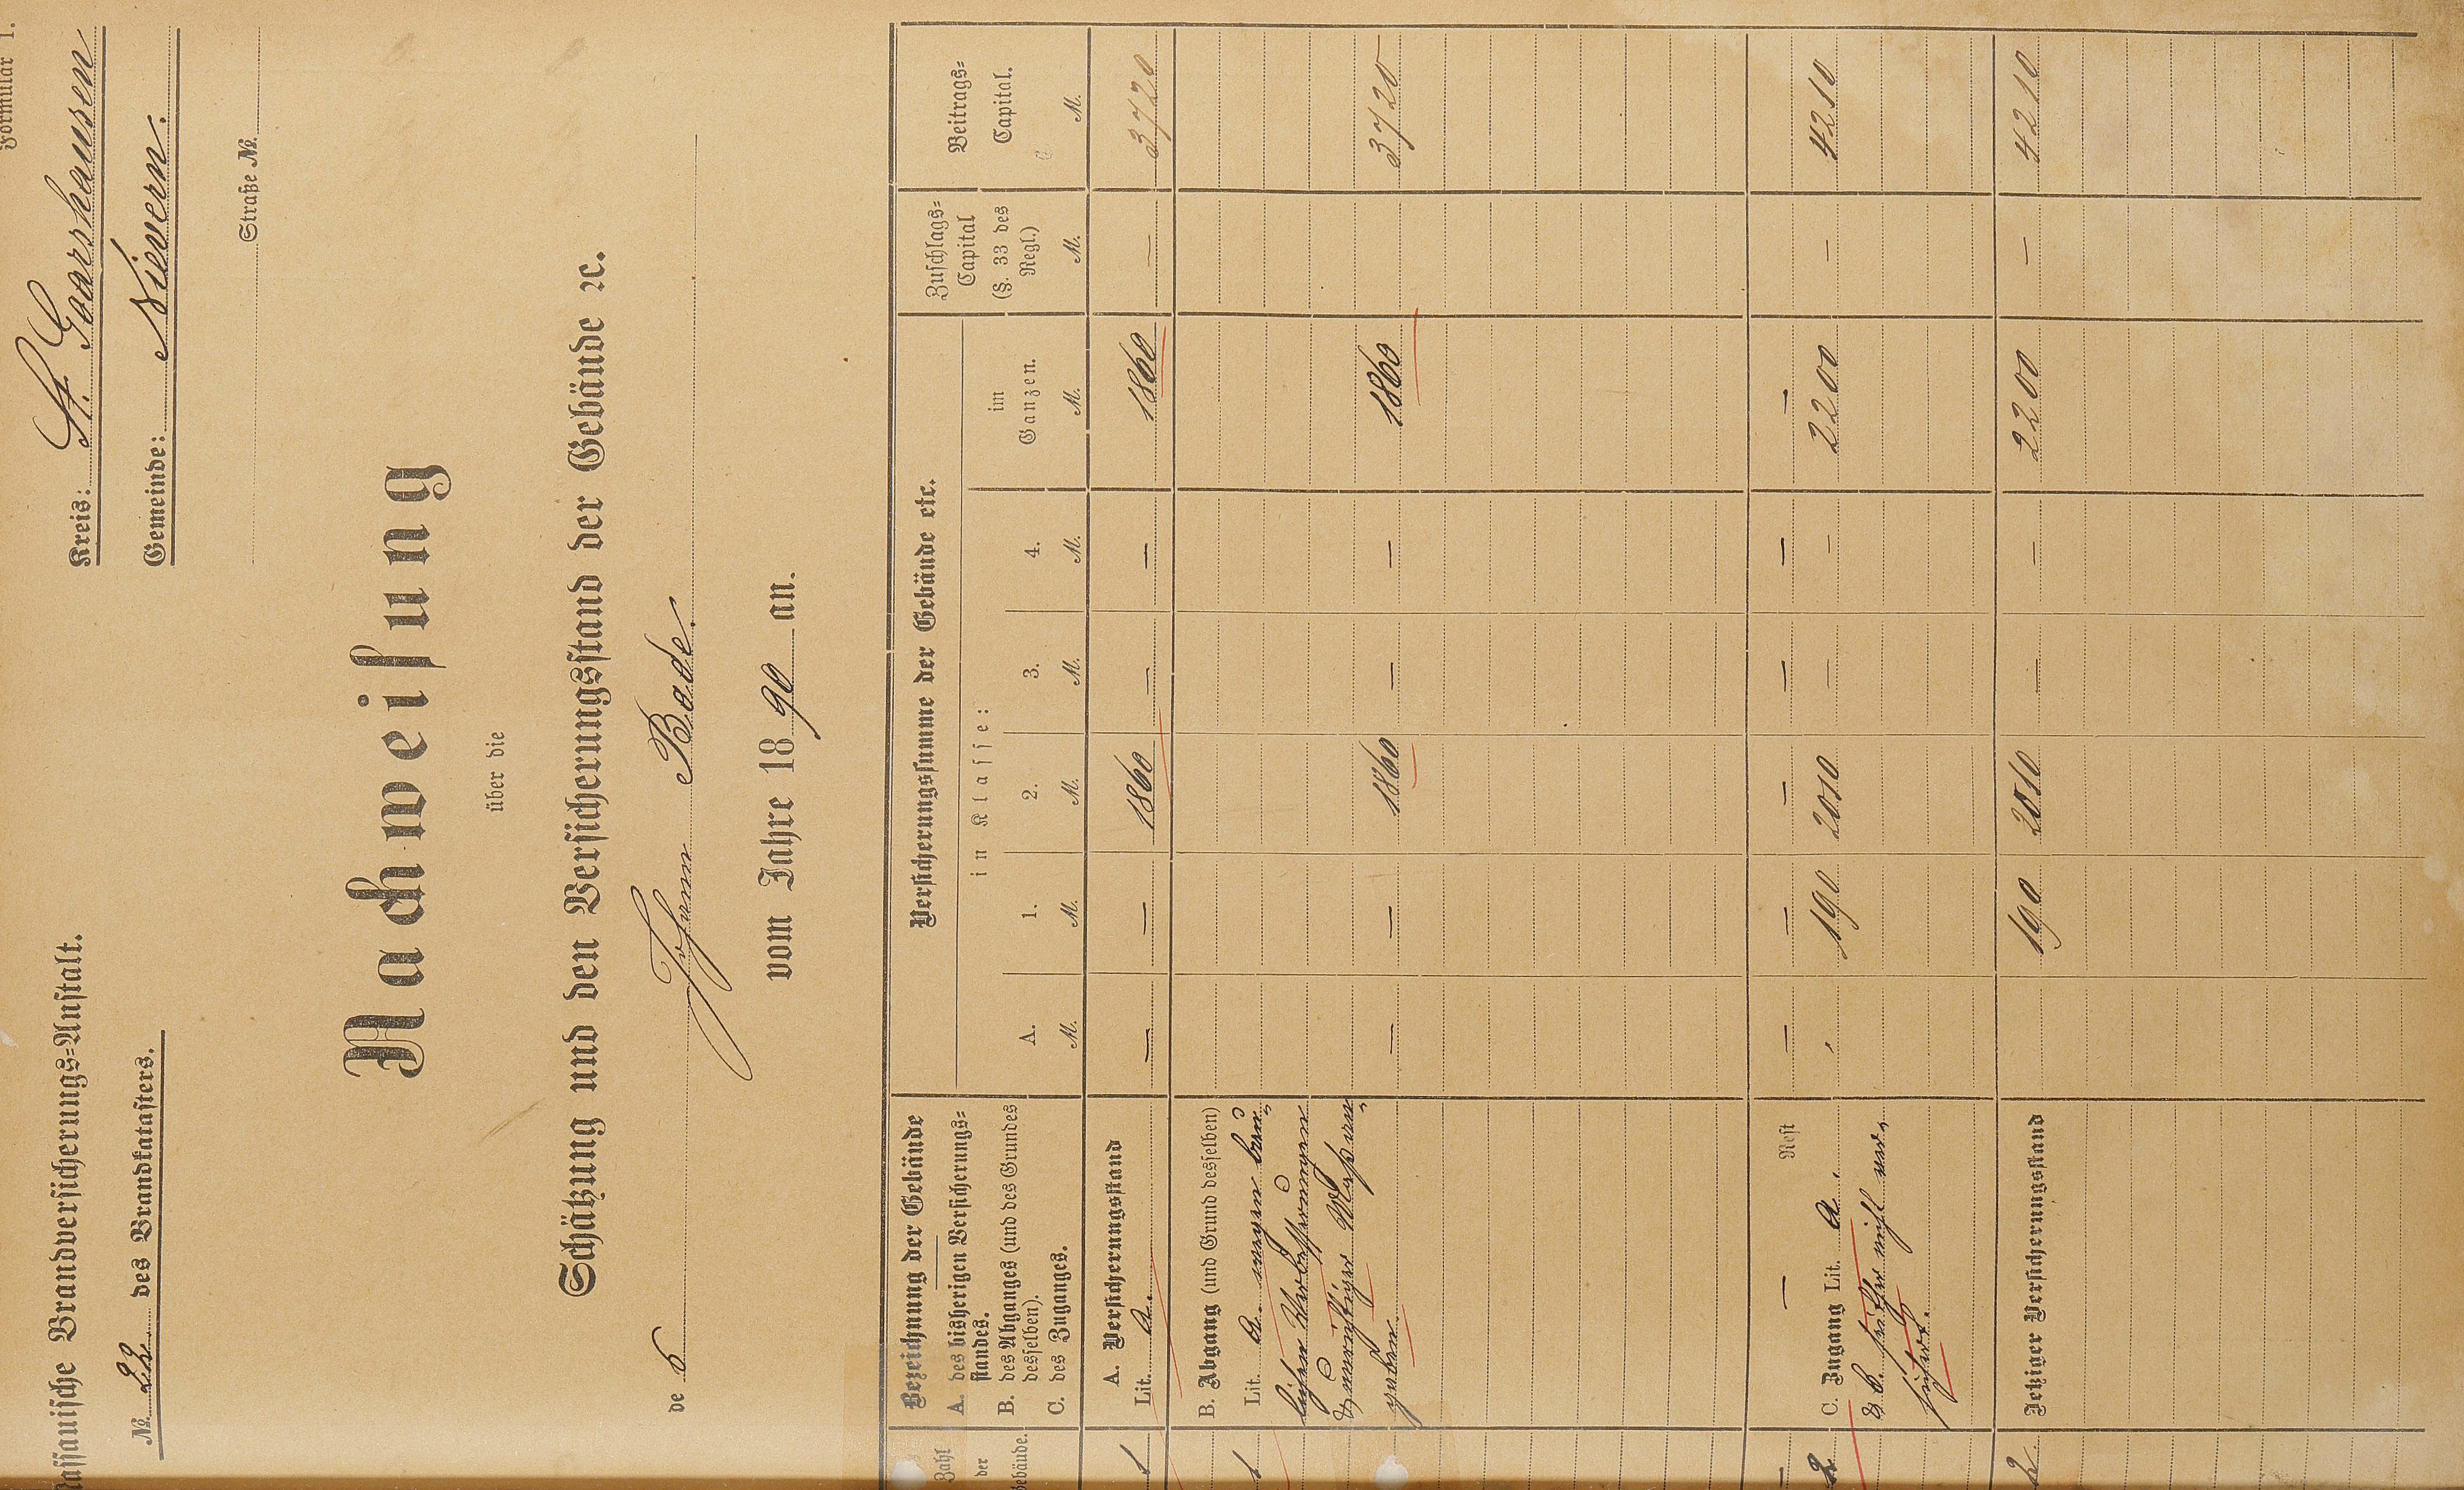 Formular 1.
Nassauische Brandversicherungs-Anstalt.
Kreis: St. Goarshausen
№ 22 des Brandkatasters.
Gemeinde: Nievern.
Straße №
Nachweisung
über die
Schätzung und den Versicherungsstand der Gebäude ꝛc.
des Johann Bade.
vom Jahre 1890 an.
Zahl der Gebäude.
Bezeichnung der Gebäude
A. des bisherigen Versicherungs-
standes.
B. des Abganges (und des Grundes
desselben).
C. des Zuganges.
Versicherungssumme der Gebäude etc.
in Klasse:
A. 1. 2. 3. 4. im Ganzen.
M. M. M. M. M. M.
Zuschlags-
Capital
(§. 33 des
Regl.)
M.
Beitrags-
Capital.
M.
A. Versicherungsstand
1 Lit. a. — — 1860 — — 1860 — 3720
B. Abgang (und Grund desselben)
1 Lit. a. wegen bau-
lichen Verbesserungen
& unrichtiger Maßan-
gaben. — — 1860 — — 1860 3720
— — Rest — — — — — —
2 C. Zugang Lit. a.
190 2010 — — 2200 — 4210
& b. früher nicht ver-
sichert.
2 Jetziger Versicherungsstand 190 2010 — — 2200 — 4210